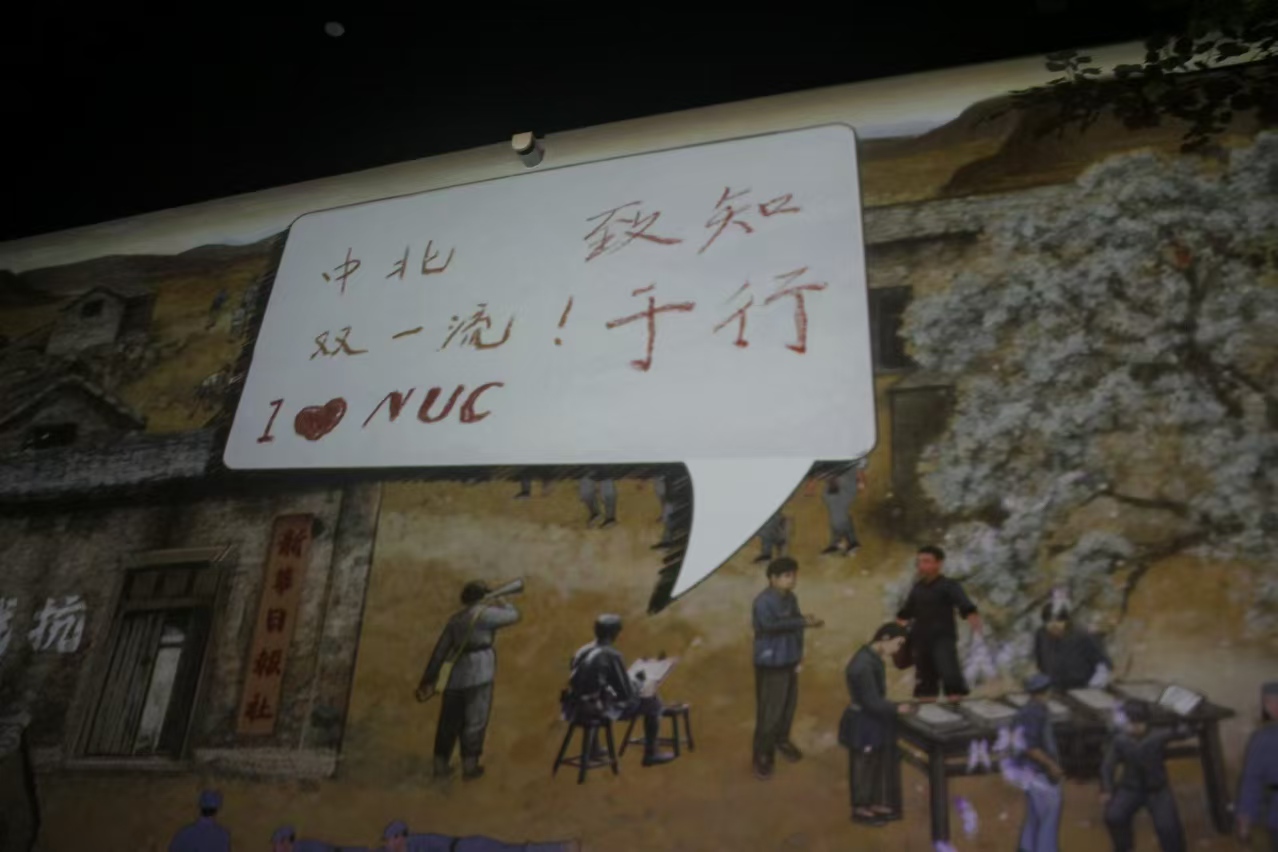 中北
双一流！
I ❤ NUC
致知
于行
新华日报社
抗